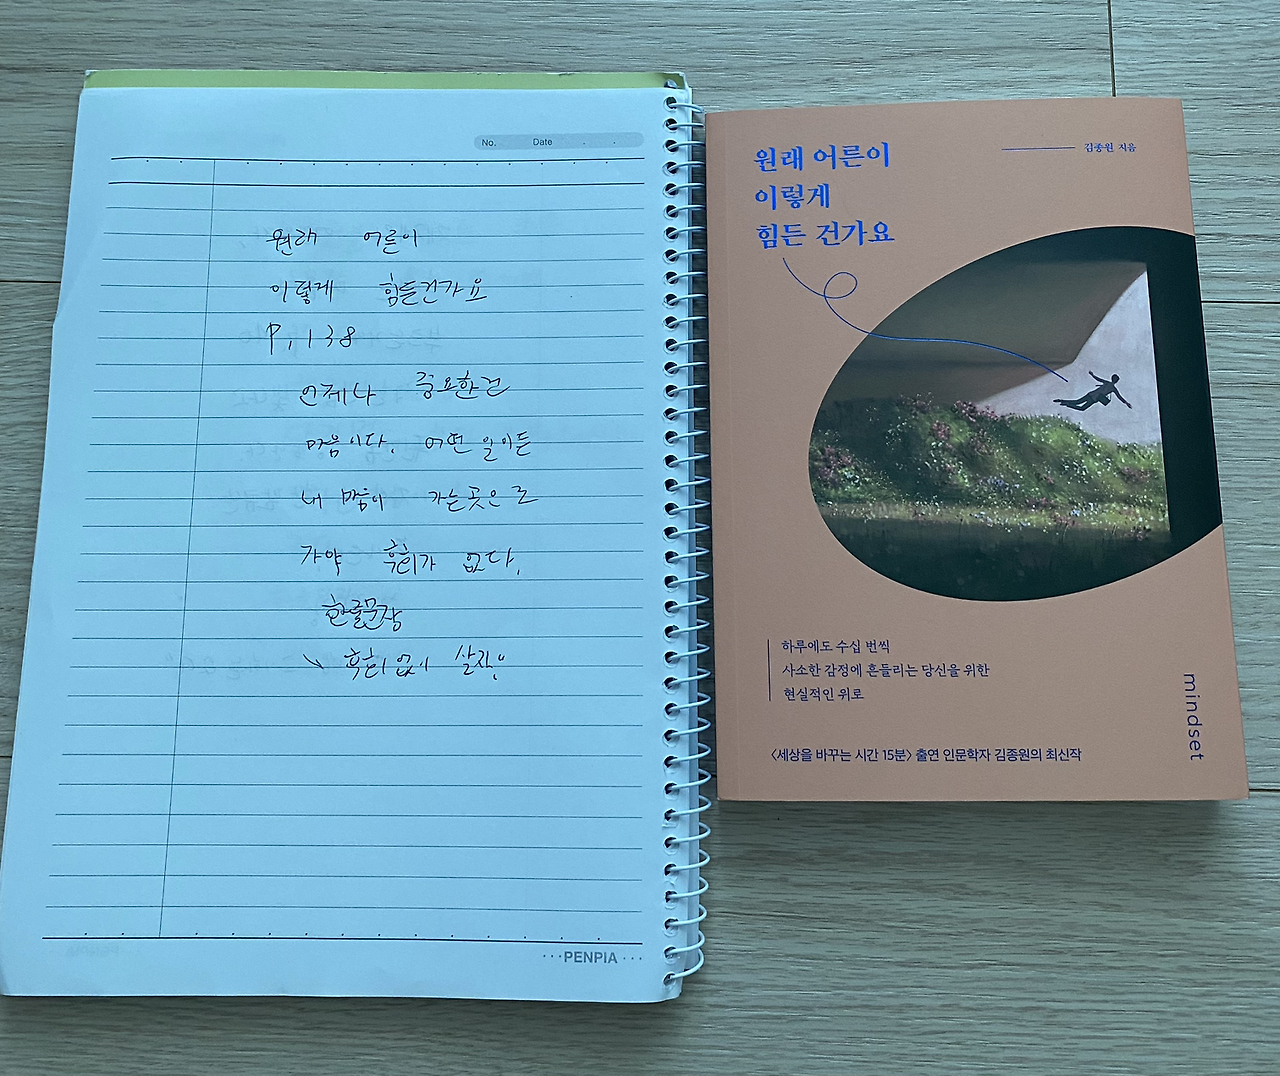 No. Date
원래 어른이
이렇게 힘든건가요
P. 138
언제나 중요한건
마음이다. 어떤 일이든
내 마음이 가는곳으로
가야 후회가 없다.
한글문장
↘ 후회없이 살자.
PENPIA
원래 어른이
이렇게
힘든 건가요
김종원 지음
하루에도 수십 번씩
사소한 감정에 흔들리는 당신을 위한
현실적인 위로
<세상을 바꾸는 시간 15분> 출연 인문학자 김종원의 최신작
mindset